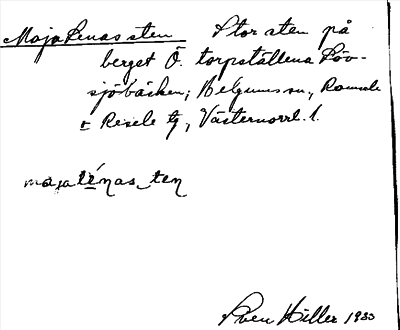 Maja Lenas sten Stor sten på
berget Ö. torpställena Löv-
sjöbäcken; Helgums sn, Ramsele
o Resele tg, Västernorrl. l.
majalénas ten
Sven Hiller 1933